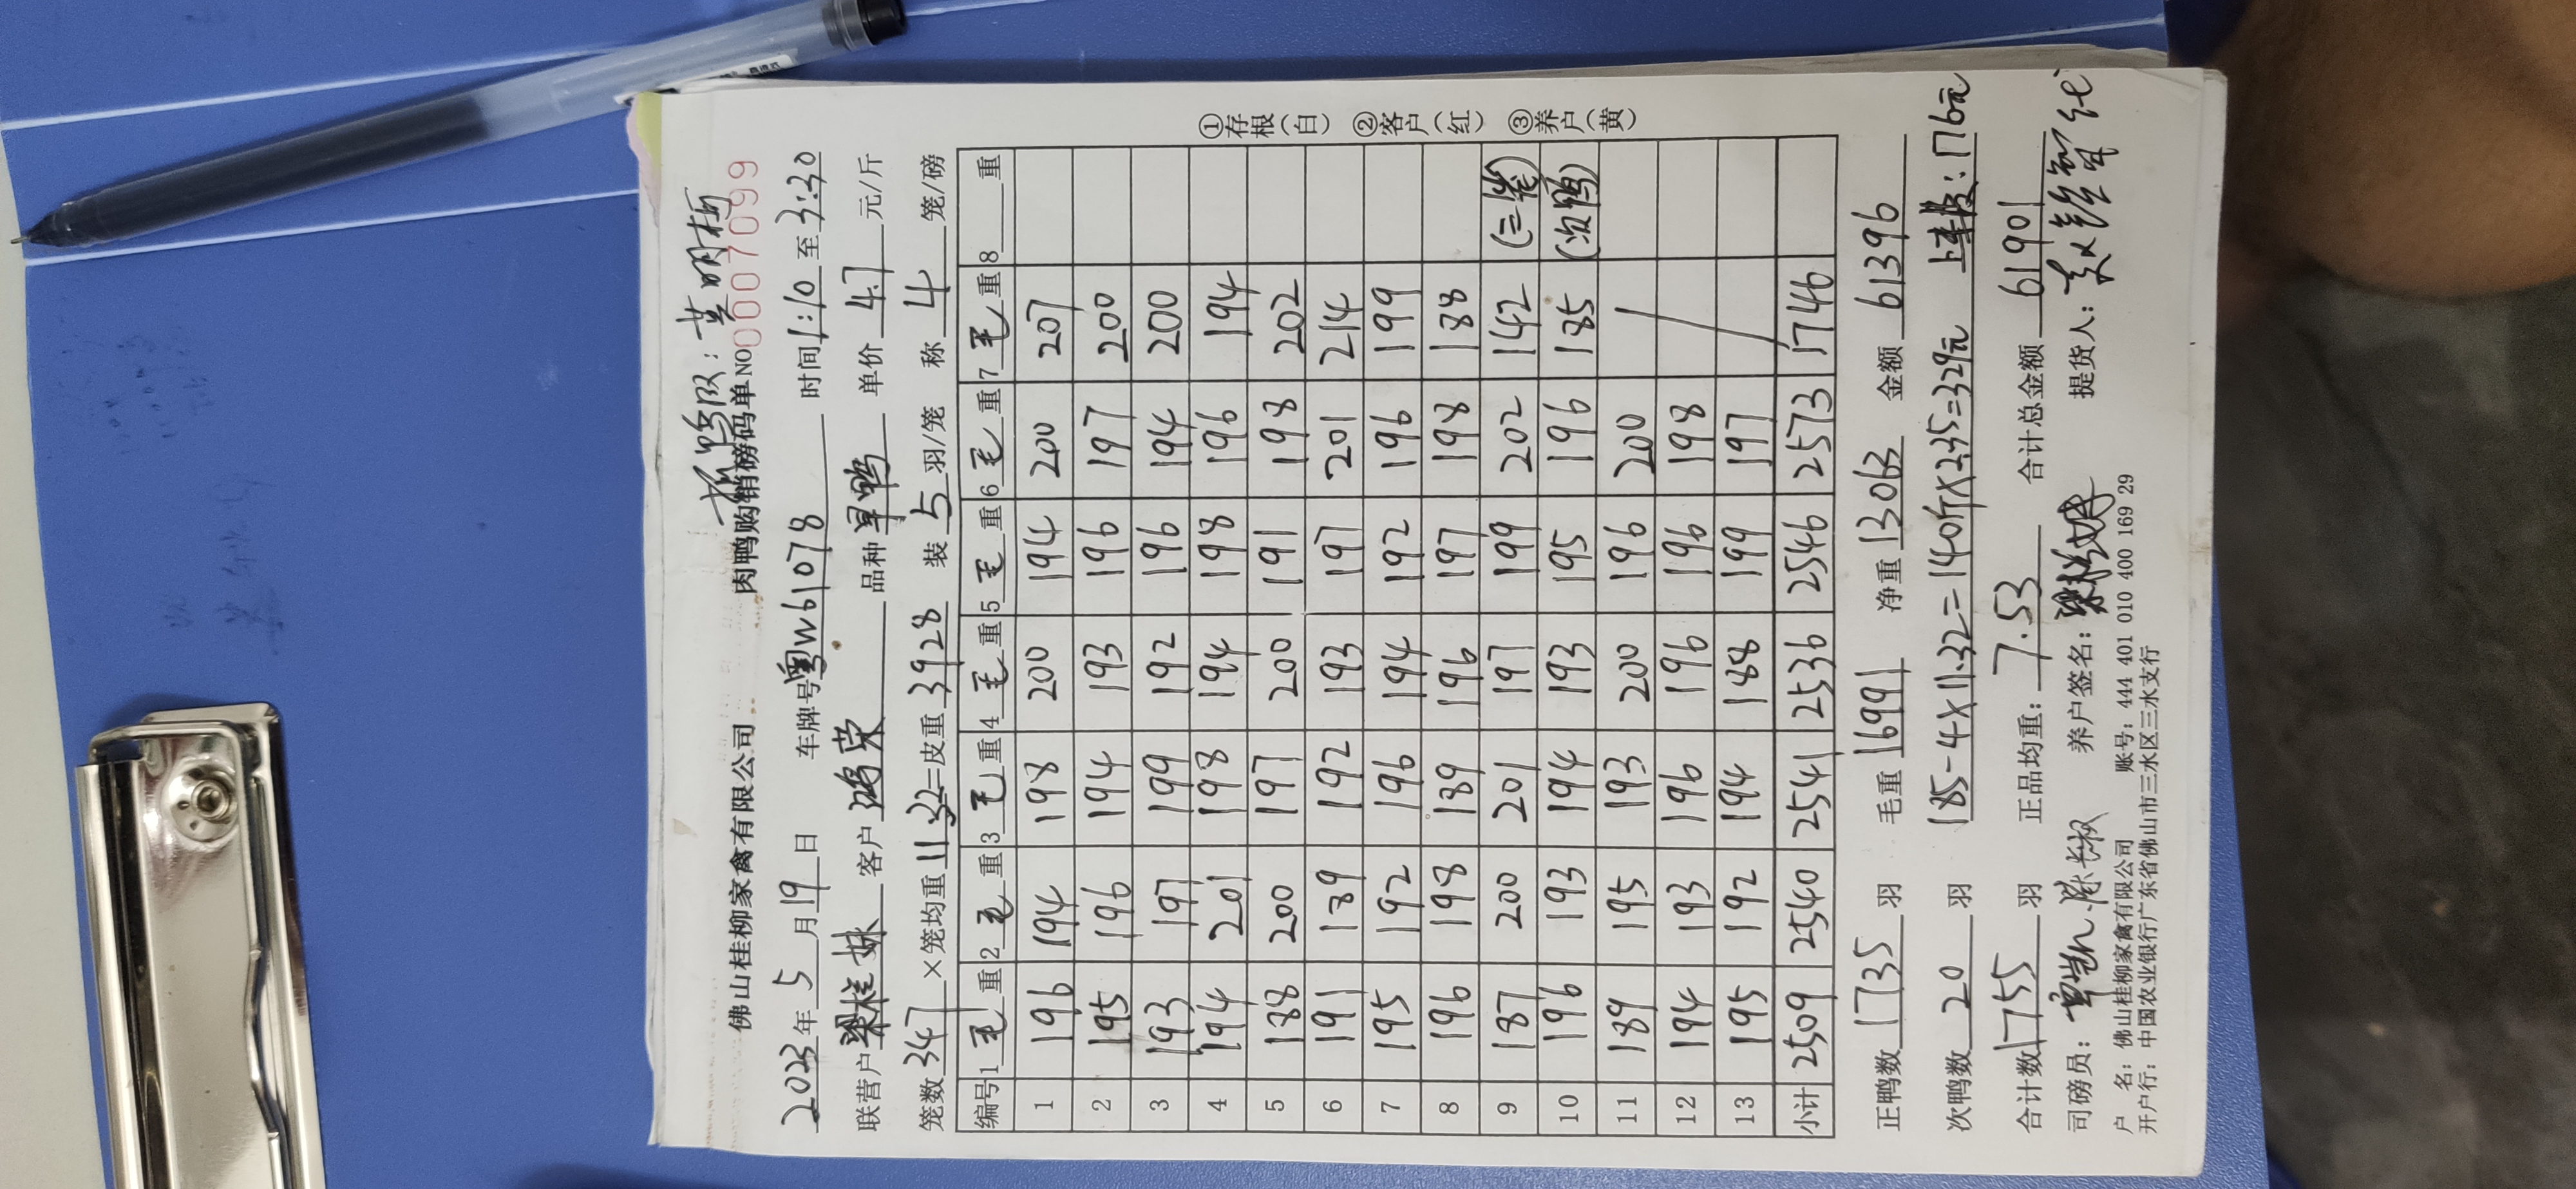 抓鸭队：黄明柯
佛山桂柳家禽有限公司 肉鸭购销磅码单 NO 0007099
2023年5月19日 车牌号粤W61078 时间1:10至3:30
联营户梁桂妹 客户鸿荣 品种旱鸭 单价4.7元/斤
笼数347×笼均重11.32=皮重3928 装5羽/笼 称4笼/磅
编号 1毛重 2毛重 3毛重 4毛重 5毛重 6毛重 7毛重 8重
1 196 194 198 200 194 200 207
2 195 196 194 193 196 197 200
3 193 197 199 192 196 194 200
4 194 201 198 194 198 196 194
5 188 200 197 200 191 198 202
6 191 189 192 193 197 201 214
7 195 192 196 194 192 196 199
8 196 198 189 196 197 198 188
9 187 200 201 197 199 202 142 (三笼)
10 196 193 194 193 195 196 185 (次鸭)
11 189 195 193 200 196 200 /
12 194 193 196 196 196 198
13 195 192 194 188 199 197
小计 2509 2540 2541 2536 2546 2573 1746
正鸭数1735羽 毛重16991 净重13063 金额61396
次鸭数20羽 185-4×11.32=140斤×2.35=329元 上车费:176元
合计数1755羽 正品均重：7.53 合计总金额61901
司磅员： 养户签名：梁桂妹 提货人：
户 名：佛山桂柳家禽有限公司 账号：444 401 010 400 169 29
开户行：中国农业银行广东省佛山市三水区三水支行
①存根(白) ②客户(红) ③养户(黄)